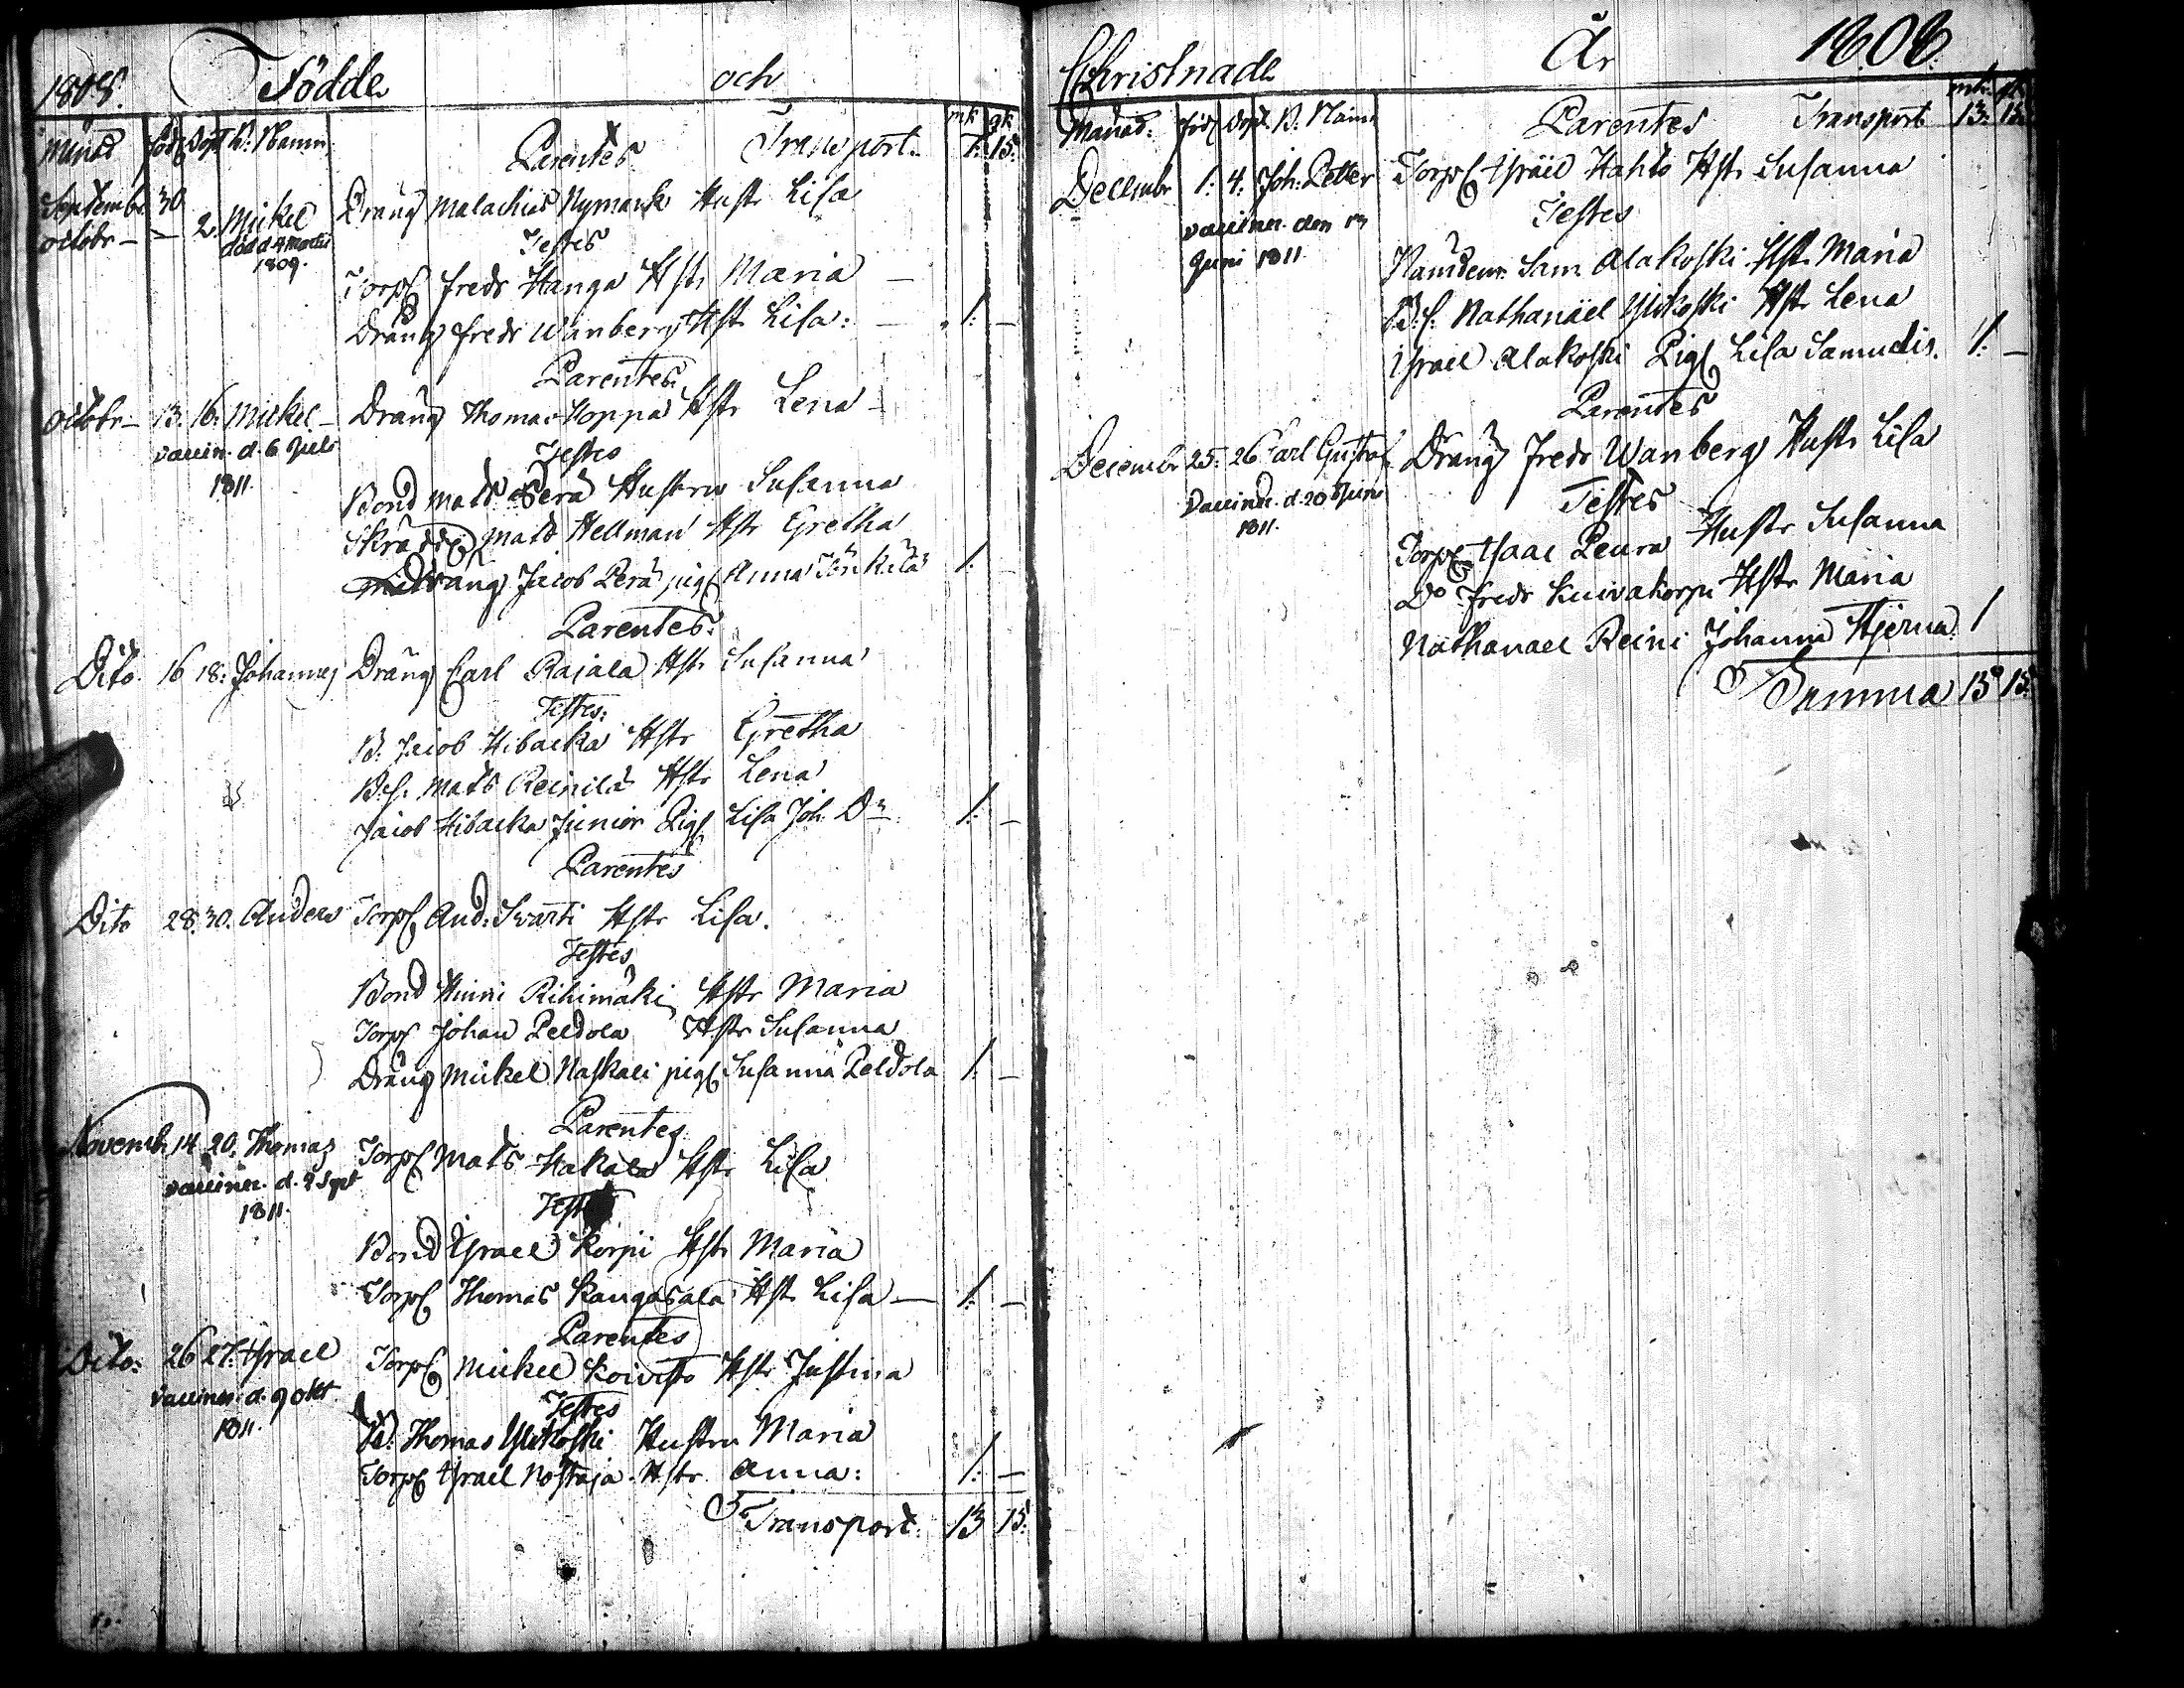 1808. Födde och
Månad föd. Döpt B: Namn Parentes Transport mk gk
7: 15:
Septembr 30 Dräng Malachias Nymark Hustr Lisa
Octobr — — 2. Mickel
död d 4 Martii
1809.
Testes
Torp. Fredr Hanga Hstr Maria —
Dräng Fredr Wanberg Hstr Lisa: — 1: —
Parentes
Octobr — 13. 16. Mickel — Dräng Thomas Hoppa Hstr Lena —
vaccin. d. 6 Juli
1811.
Testes
Bond Mats Perä Hustru Susanna
Skrädd Mats Hellman Hstr Gretha
Dräng Jacob Perä pig. Anna 1: —
Parentes:
Dito 16 18: Johannes Dräng Carl Rajala Hstr Susanna
Testes:
B. Jacob Hibacka Hstr Gretha
B.S. Mats Reinilä Hstr Lena
Jacob Hibacka Junior Pig. Lisa Joh. Dr. 1: —
Parentes
Dito 28. 30. Anders Torp. And: Svarti Hstr Lisa.
Testes
Bond Hinri Rihimäki Hstr Maria
Torp Johan Peldola Hstr Susanna
Dräng Mickel Naskali pig. Susanna Peldola 1: —
Parentes
Novembr 14 20. Thomas Torp. Mats Hakala Hstr Lisa
vacciner. d. 2 Sept
1811.
Testes
Bond Israel Korpi Hstr Maria
Torp. Thomas Kangasala Hstr Lisa — 1: —
Parentes
Dito: 26 27. Israel Torp. Mickel Koivisto Hstr Justina
vacciner. d. 9 Okt
1811.
Testes
B. Thomas Ylikoski Hustru Maria
Torp. Israel Nostaja Hstr Anna: 1: —
Transport: 13 15:
Christnade År 1808.
Månad: föd. Döpt. B: Namn Parentes Transport mk. gk
13: 15:
Decembr 1: 4: Joh: Petter Torp. Israel Hahto Hstr Susanna
vacciner. den
Juni 1811.
Testes
Nämdem: Sam Alakoski Hstr Maria
B.S. Nathanael Ylikoski Hstr Lena
Israel Alakoski Pig. Lisa Samudtr. 1: —
Parentes
Decembr 25. 26 Carl Gustaf Dräng Fredr Wanberg Hustr Lisa
vacciner. d. 20 Juni
1811.
Testes
Torp. Isaac Peura Hustr Susanna
Do Fredr Kuivakorpi Hstr Maria
Nathanael Reini Johanna Stjerna 1
Summa 15 15: